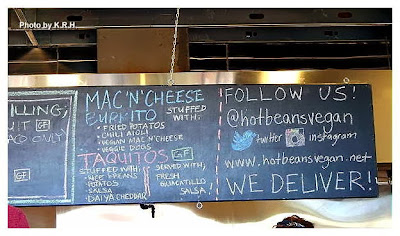 Photo by K.R.H.
ILLING,
UIT GF
ONLY
MAC 'N' CHEESE
BURRITO STUFFED
WITH:
• FRIED POTATOS
• CHILI AIOLI
• VEGAN MAC 'N' CHEESE
• VEGGIE DOGS
TAQUITOS GF
STUFFED WITH:
BEANS
• POTATOS
• SALSA
• DAIYA CHEDDAR
SERVED WITH,
FRESH
SALSA!
FOLLOW US!
@hotbeansvegan
twitter instagram
www.hotbeansvegan.net
WE DELIVER!